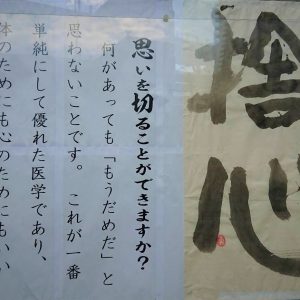 捨心
思いを切ることができますか？
何があっても「もうだめだ」と
思わないことです。 これが一番
単純にして優れた医学であり、
体のためにも心のためにもいい